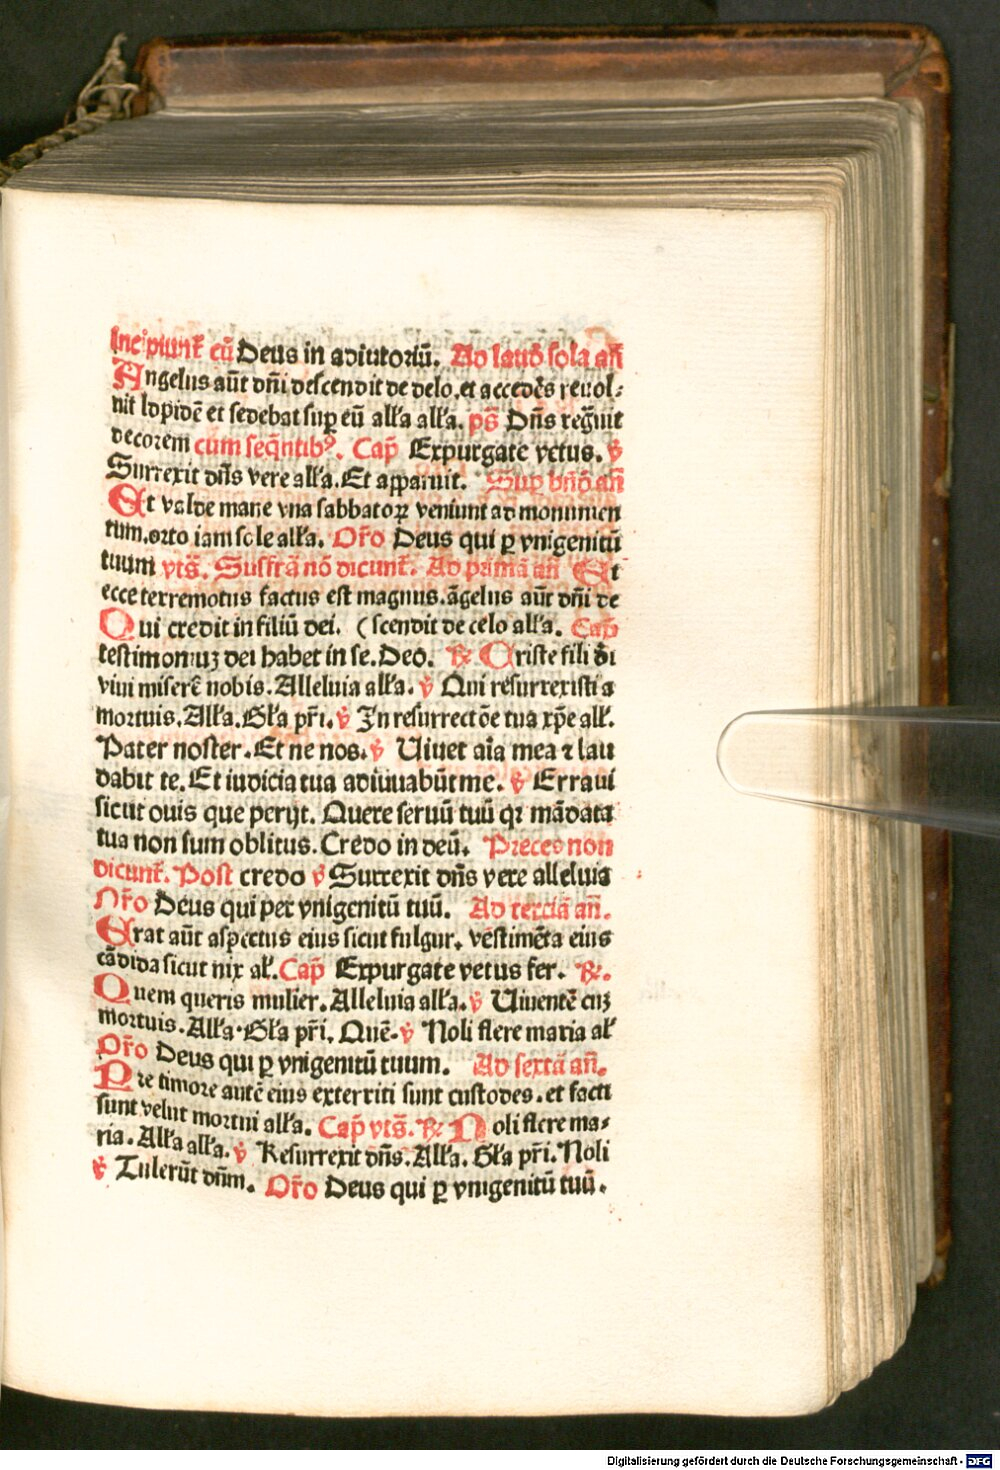 Incipiunt̃ cũ Deus in adiutoriũ. Ad laud̃ sola añ
Angelus aũt dñi descendit de celo. et accedẽs reuol⸗
uit lapidẽ et sedebat sup eũ alľa alľa. ps̃ Dñs regñuit
decorem cum seq̃ntibꝰ. Cap̃ Expurgate vetus. ꝟ
Surrexit dñs vere alľa. Et apparuit. Sup bñd̃ añ
Et valde mane vna sabbatoꝝ veniunt ad monumen
tum. orto iam sole alľa. Oro̅ Deus qui ꝑ vnigenitũ
tuum vts̃. Suffrã nõ dicunt̃. Ad primã añ Et
ecce terremotus factus est magnus. ãgelus aũt dñi de
Qui credit in filiũ dei. (scendit de celo alľa. Cap̃
testimoniuꝫ dei habet in se. Deo. ℟ Criste fili di̅
viui miserẽ nobis. Alleluia alľa. ꝟ Qui resurrexisti a
mortuis. Alľa. Gľa pri̅. ꝟ In resurrectõe tua xp̃e alľ.
Pater noster. Et ne nos. ꝟ Uiuet aĩa mea ⁊ lau
dabit te. Et iudicia tua adiuuabũt me. ꝟ Erraui
sicut ouis que perijt. Quere seruũ tuũ qꝛ mãdata
tua non sum oblitus. Credo in deũ. Preces non
dicunt̃. Post credo ꝟ Surrexit dñs vere alleluia
Oro̅ Deus qui per vnigenitũ tuũ. Ad terciã añ.
Erat aũt aspectus eius sicut fulgur. vestimẽta eius
cãdida sicut nix aľ. Cap̃ Expurgate vetus fer. ℟.
Quem queris mulier. Alleluia alľa. ꝟ Uiuentẽ cuꝫ
mortuis. Alľa. Gľa pri̅. Quẽ. ꝟ Noli flere maria aľ
Oro̅ Deus qui ꝑ vnigenitũ tuum. Ad sextã añ.
Pre timore autẽ eius exterriti sunt custodes. et facti
sunt velut mortui alľa. Cap̃ vts̃. ℟ Noli flere ma⸗
ria. Alľa alľa. ꝟ Resurrexit dñs. Alľa. Gľa pri̅. Noli
ꝟ Tulerũt dñm. Oro̅ Deus qui ꝑ vnigenitũ tuũ.
Digitalisierung gefördert durch die Deutsche Forschungsgemeinschaft - DFG